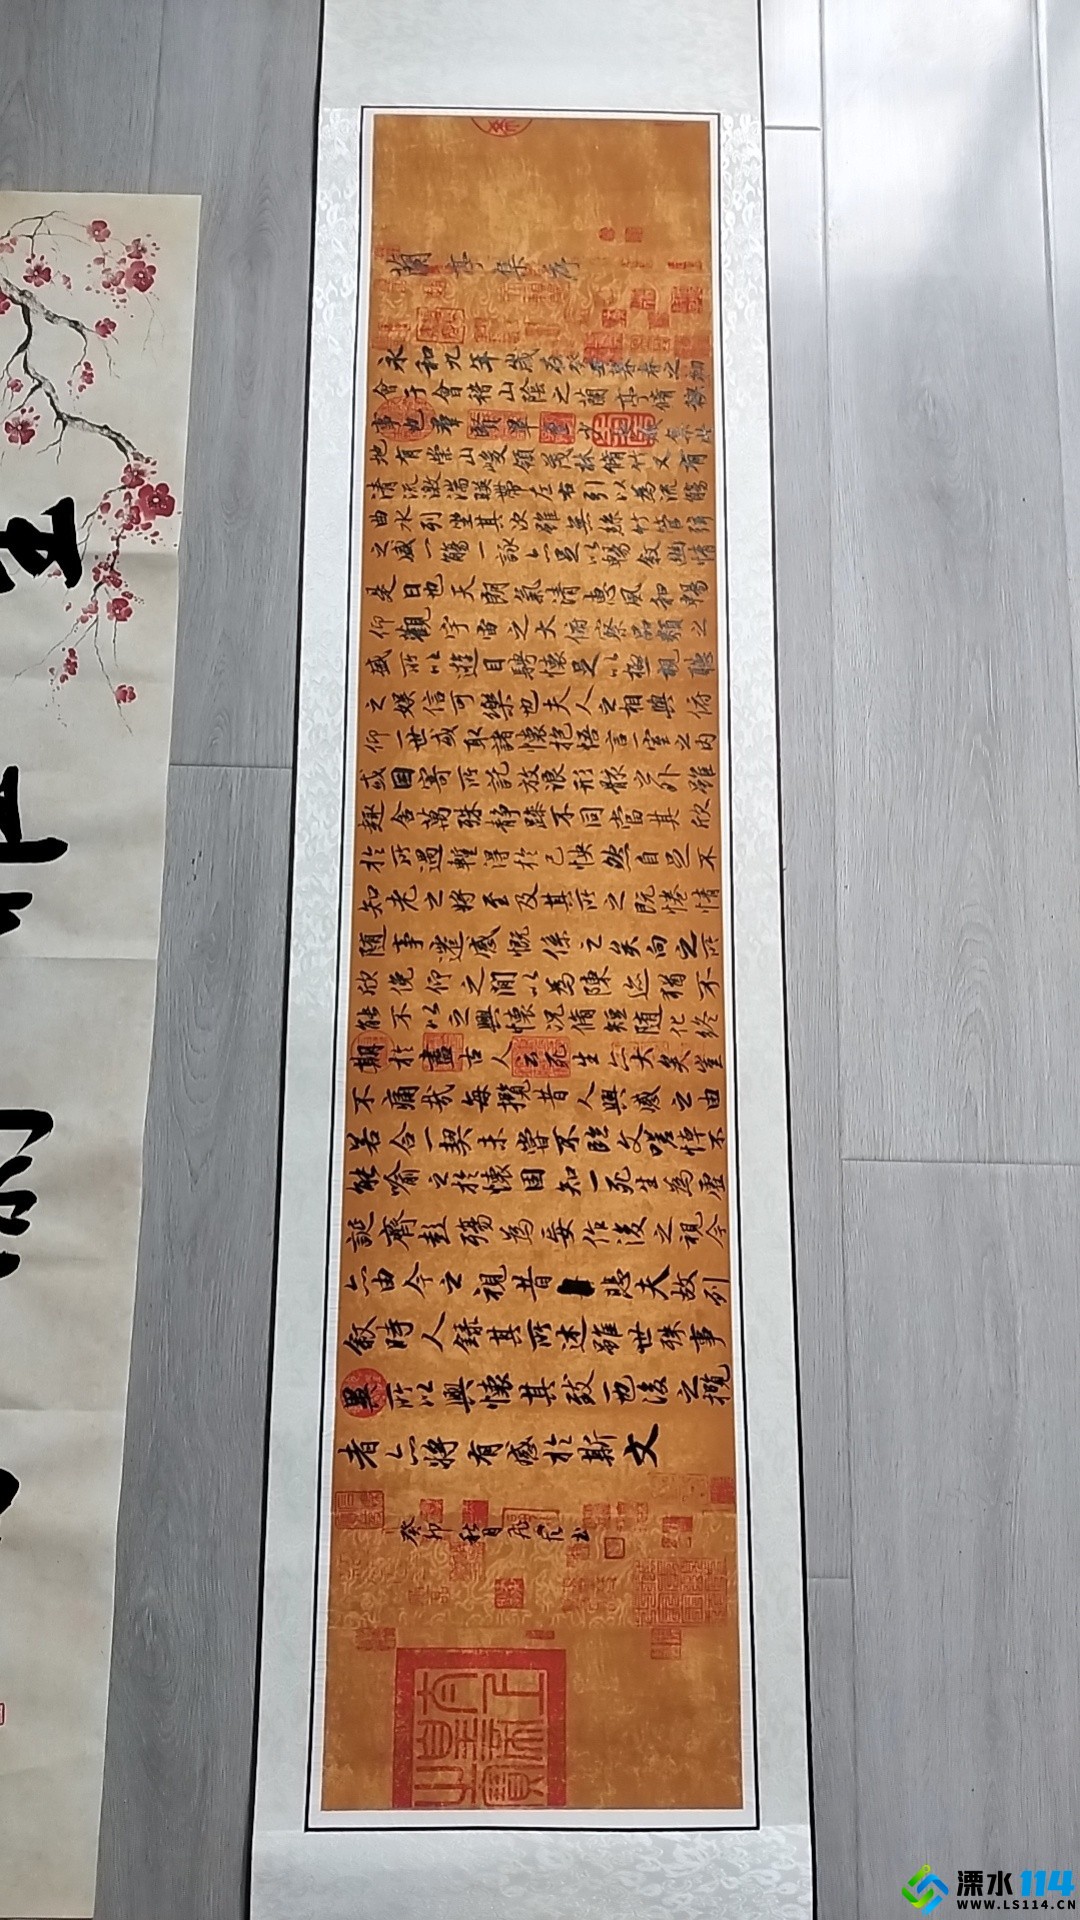 蘭亭集序
永和九年歲在癸丑暮春之初
會于會稽山陰之蘭亭脩禊
事也群賢畢至少長咸集此
地有崇山峻領茂林脩竹又有
清流激湍暎帶左右引以為流觴
曲水列坐其次雖無絲竹管弦
之盛一觴一詠亦足以暢敘幽情
是日也天朗氣清惠風和暢
仰觀宇宙之大俯察品類之
盛所以遊目騁懷足以極視聽
之娛信可樂也夫人之相與俯
仰一世或取諸懷抱悟言一室之內
或因寄所託放浪形骸之外雖
趣舍萬殊靜躁不同當其欣
於所遇暫得於己怏然自足不
知老之將至及其所之既惓情
隨事遷感慨係之矣向之所
欣俛仰之閒以為陳迹猶不
能不以之興懷況脩短隨化終
期於盡古人云死生亦大矣豈
不痛哉每攬昔人興感之由
若合一契未嘗不臨文嗟悼不
能喻之於懷固知一死生為虛
誕齊彭殤為妄作後之視今
亦由今之視昔悲夫故列
敘時人錄其所述雖世殊事
異所以興懷其致一也後之攬
者亦將有感於斯文
癸卯秋月
溧水114
WWW.LS114.CN